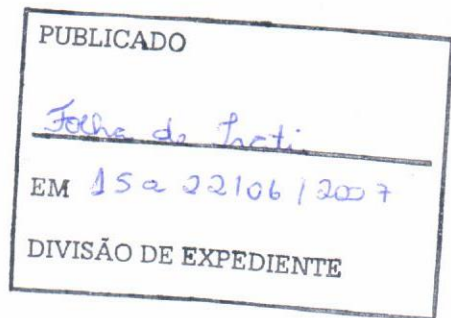 PUBLICADO
Folha de Irati
EM 15 a 22/06/2007
DIVISÃO DE EXPEDIENTE